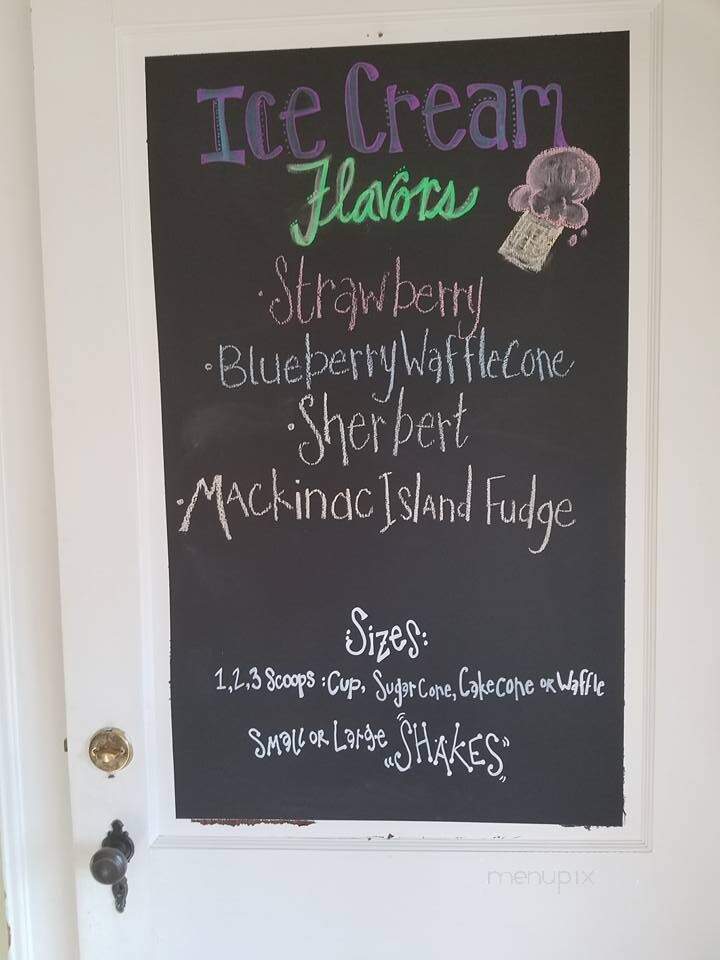 Ice Cream
Flavors
·Strawberry
·Blueberry Waffle Cone
·Sherbert
·Mackinac Island Fudge
:Sizes:
1,2,3 Scoops: Cup, Sugar Cone, Cake cone or Waffle
Small or Large "SHAKES"
menupix